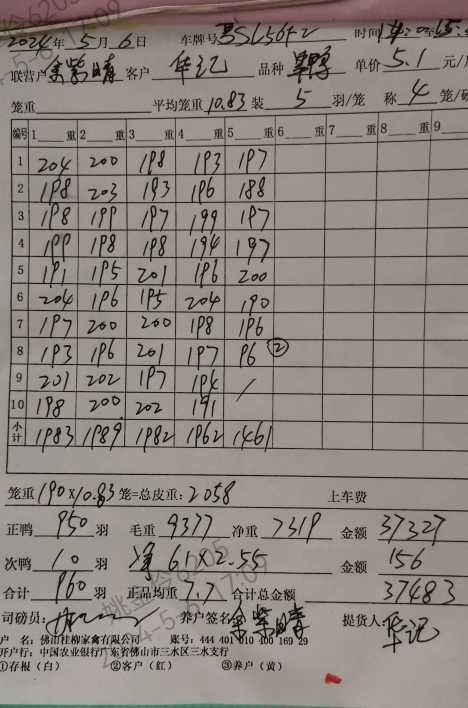 2024年5月6日 车牌号 时间
联营户 余紫晴 客户 华记 品种 单价 5.1 元/
笼重 平均笼重10.83装 5 羽/笼 称 4 笼/
编号 1 重 2 重 3 重 4 重 5 重 6 重 7 重 8 重 9
1 204 200 198 193 197
2 198 203 193 196 188
3 198 199 197 199 197
4 199 198 198 194 197
5 191 195 201 196 200
6 204 196 195 204 190
7 197 200 200 198 196
8 193 196 201 197 96 ②
9 201 202 197 194 /
10 198 200 202 191
小计 1983 1989 1982 1962 1461
笼重190×10.83笼=总皮重:2058 上车费
正鸭 950 羽 毛重 9377 净重 7319 金额 37327
次鸭 10 羽 净61×2.55 金额 156
合计 960 羽 正品均重 7.7 合计总金额 37483
司磅员: 养户签名 余紫晴 提货人: 华记
户 名:佛山桂柳家禽有限公司 账号:444 401 010 400 169 29
开户行:中国农业银行广东省佛山市三水区三水支行
①存根(白) ②客户(红) ③养户(黄)